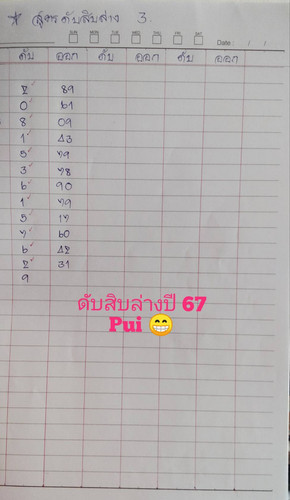 * สูตรดับสิบล่าง 3.
SUN MON TUE WED THU FRI SAT
Date : / /
ดับ ออก ดับ ออก ดับ ออก
2 89
0 61
8 09
1 43
5 79
3 78
6 90
1 79
5 17
7 60
6 42
2 31
9
ดับสิบล่างปี 67
Pui 😁